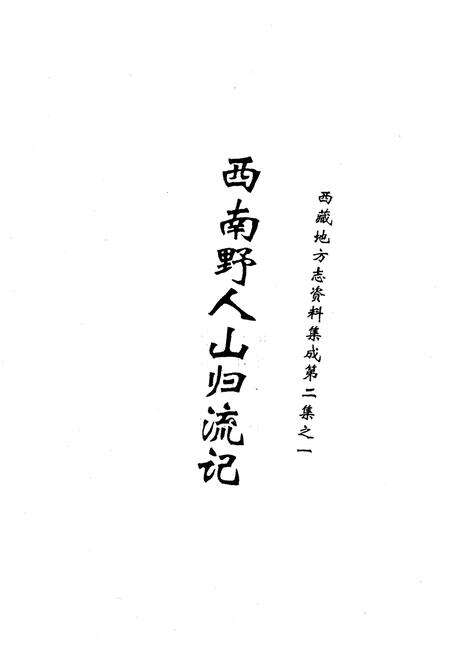 西藏地方志资料集成第二集之一
西南野人山归流记